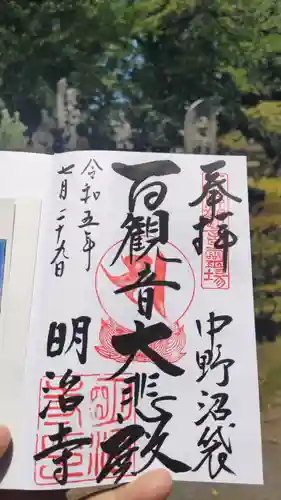 奉拝
中野沼袋
百観音大悲殿
令和五年
七月二十九日
明治寺